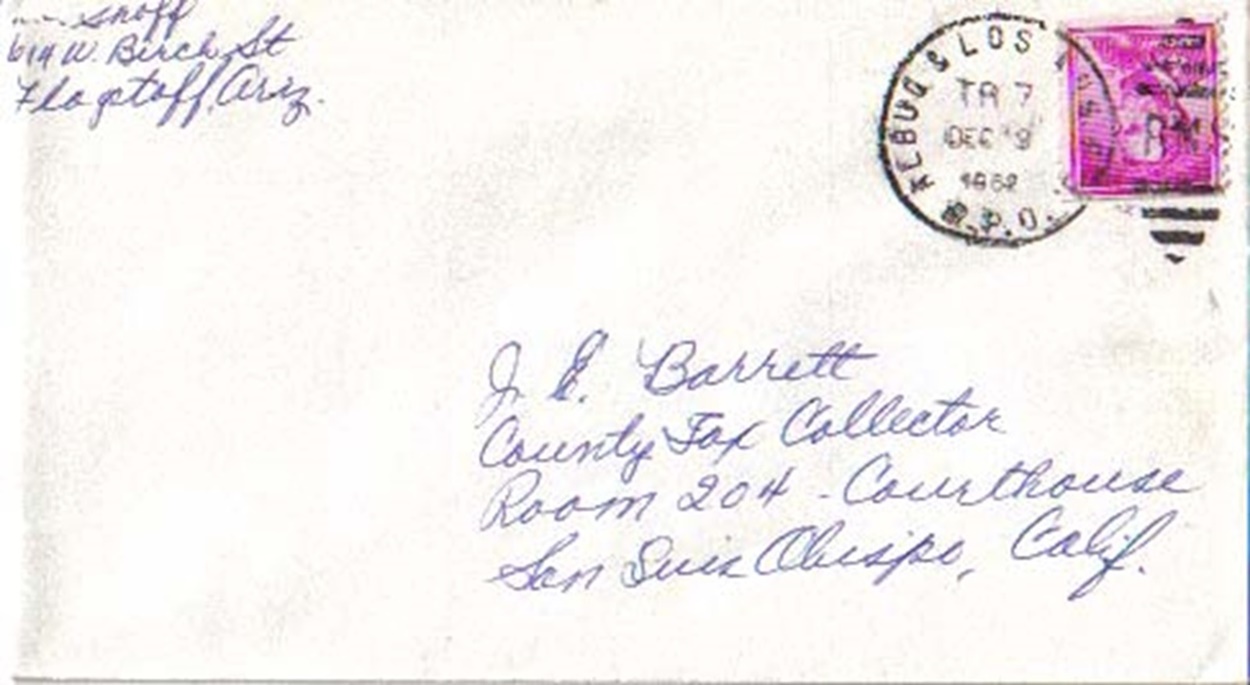 Snoff
614 W. Birch St
Flagstaff, Ariz.
ALBUQ & LOS
TR 7
DEC 9
1962
R.P.O.
J. E. Barrett
County Tax Collector
Room 204 - Courthouse
San Luis Obispo, Calif.